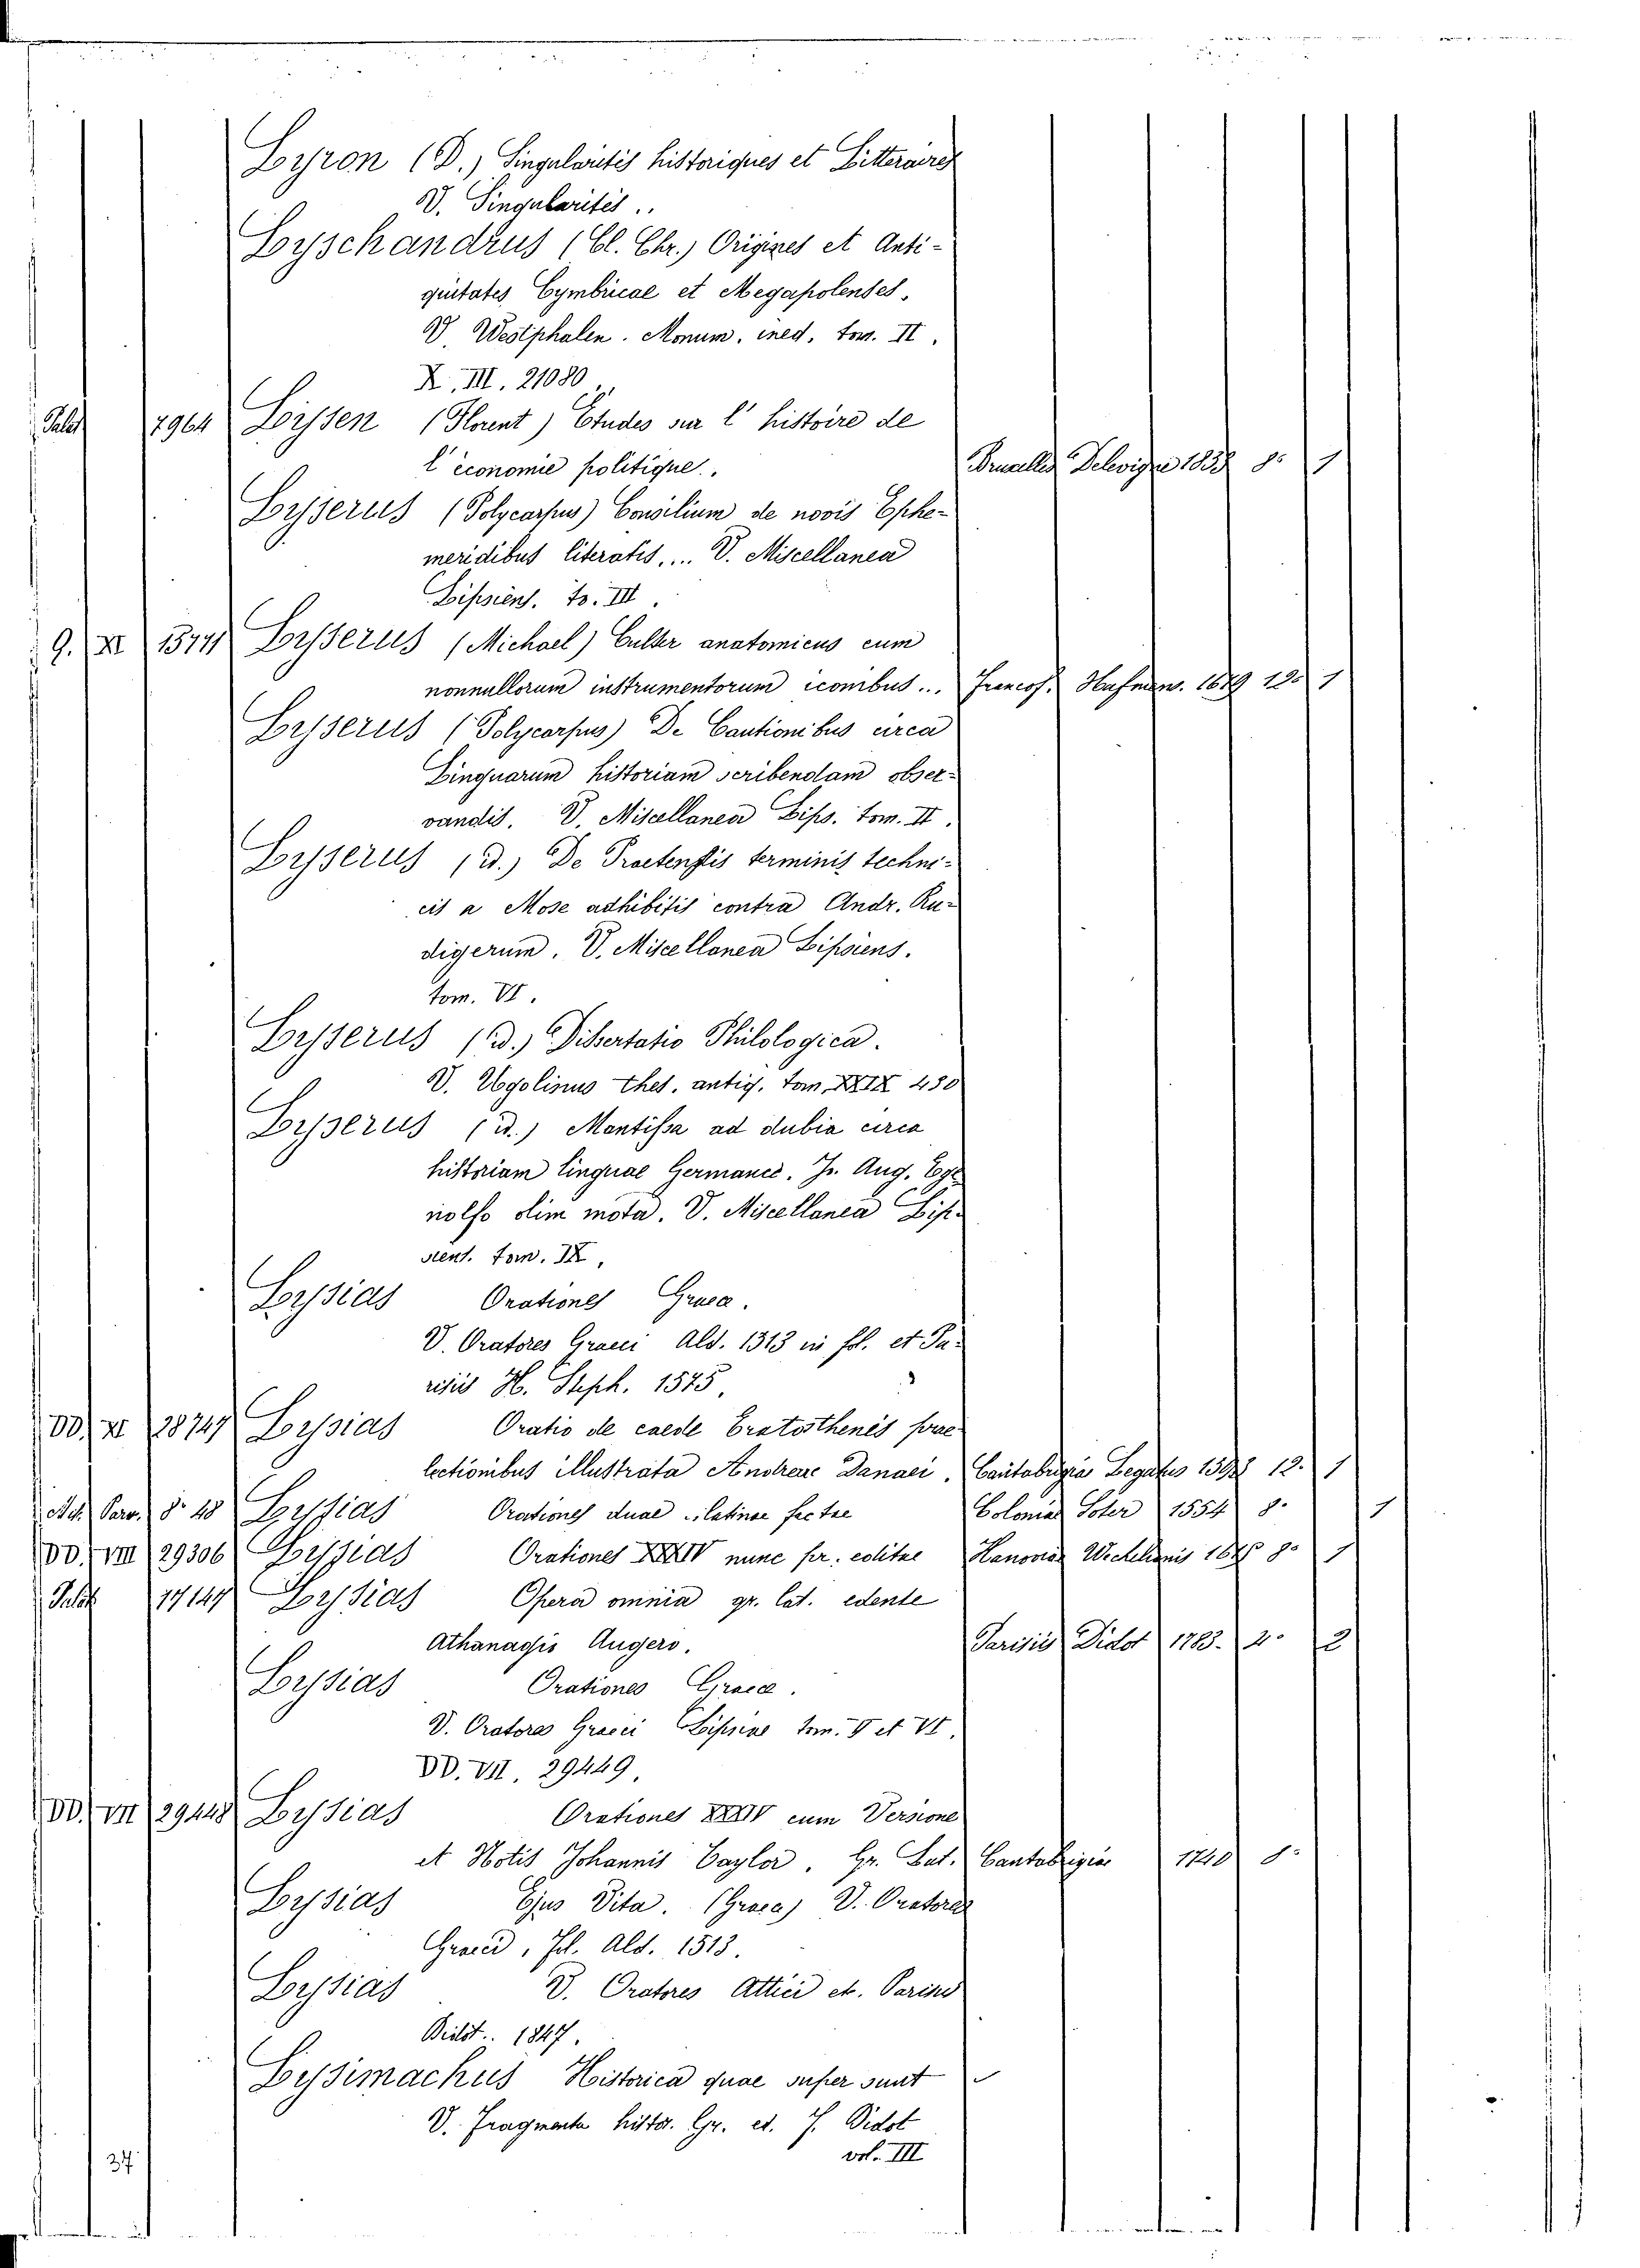 Lyron (D.) Singularités historiques et Litteraires
V. Singularités..
Lyschandrus (Cl. Chr.) Origines et Anti-
quitates Cymbricae et Megapolenses,
V. Westphalen. Monum. ined. tom. II.
X. III. 21080
Palat 7964 Lyssen (Florent) Etudes sur l'histoire de
l'économie politique.. Bruxelles Delevigne 1838 8° 1
Lysserus (Polycarpus) Consilium de novis Ephe-
meridibus literatis,... V. Miscellanea
Lipsiens. to. III.
9. XI 15711 Lysserus (Michael) Culter anatomicus cum
nonnullorum instrumentorum iconibus... Francof. Hafniens. 1679 12° 1
Lysserus (Polycarpus) De Cautionibus circa
Linguarum historiam scribendam obser-
vandis. V. Miscellanea Lips. tom. II.
Lysserus (id.) De Praetensis terminis techni-
cis a Mose adhibitis contra Andr. Ru-
digerum. V. Miscellanea Lipsiens.
tom. VI.
Lysserus (id.) Dissertatio Philologica.
V. Ugolinus thes. antiq. tom. XXIX 480
Lysserus (id.) Mantissa ad dubia circa
historiam linguae Germanic. Jo. Aug. Ege
nolfo olim mota. V. Miscellanea Lip-
sient. tom. IX,
Lysias Orationes Graea.
V. Oratores Graeci Ald. 1313 in fol. et Pa-
risiis H. Steph. 1575,
DD. XI 28747 Lysias Oratio de caede Eratosthenis prae
lectionibus illustrata Andreae Danaei, Cantabrigiae Legatus 1593 12. 1
Act. Parv. 8° 48 Lysias Orationes duae latinae factae Coloniae Soter 1554 8. 1
DD. VIII 29306 Lysias Orationes XXXIV nunc pr. editae Hanoviae Wechelianis 8° 1
Palat 17147 Lysias Opera omnia gr. lat. edente
Athanagio Augero. Parisiis Didot 1783. 4° 2
Lysias Orationes Graece.
V. Oratores Graeci Lipsiae tom. V et VI.
DD. VII. 29449,
DD. VII 29448 Lysias Orationes XXXIV cum Versione
et Notis Johannis Taylor, Gr. Lat. Cantabrigiae 1740 8.
Lysias Ejus Vita. (Graea) V. Oratores
Graeci, Fol. Ald. 1513.
Lysias V. Oratores Attici et. Parisis
Didot.. 1847.
Lysimachus Historica quae super sunt
V. Fragmenta histor. Gr. ed. F. Didot
vol. III
37